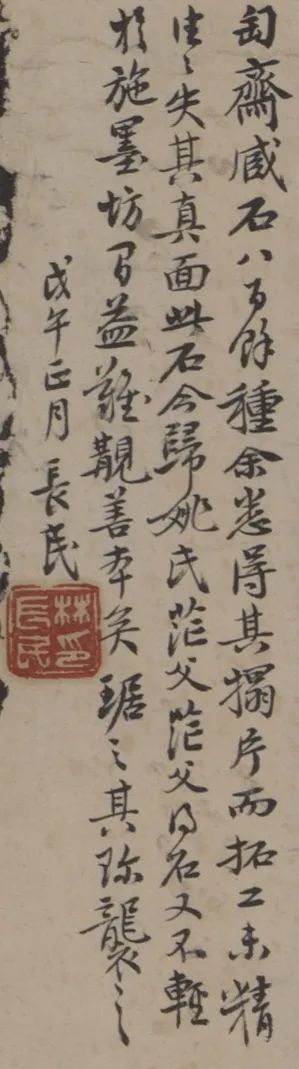 匋齋臧石八百餘種余悉得其搨片而拓工未精
往〻失其真面此石今歸姚氏茫父茫父得石又不輕
於施墨坊間益難覯善本矣琚之其珍襲之
戊午正月 長民
林長民印